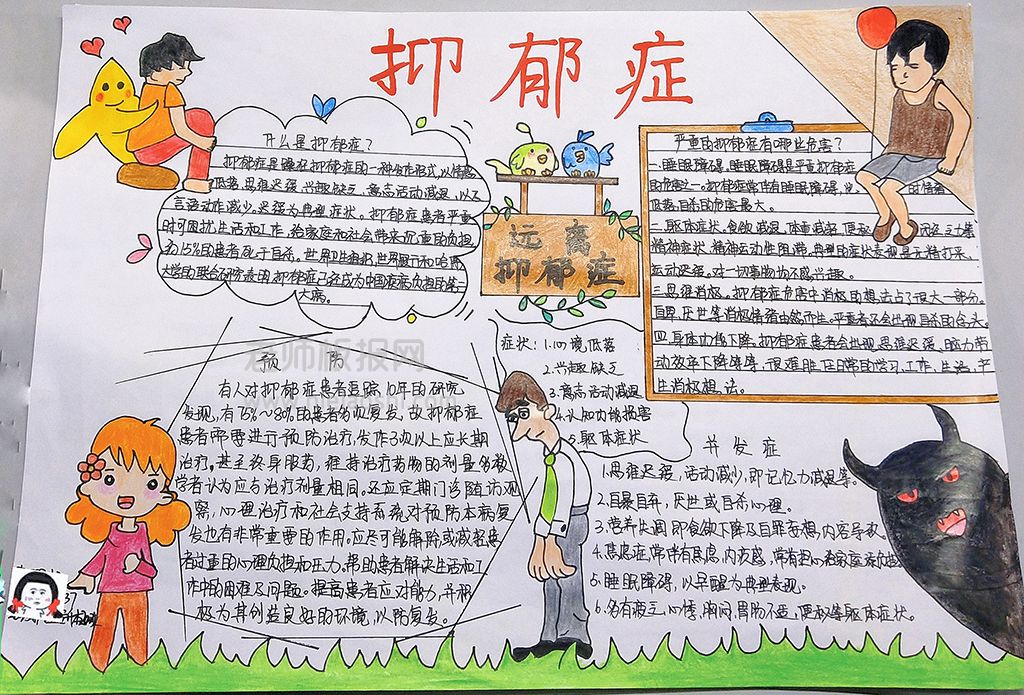 抑郁症
什么是抑郁症?
抑郁症是躁狂抑郁症的一种发作形式,以情感
低落、思维迟缓、兴趣缺乏、意志活动减退,以及
言语动作减少,迟缓为典型症状。抑郁症患者严重
时可困扰生活和工作,给家庭和社会带来沉重的负担,
约15%的患者死于自杀。世界卫生组织、世界银行和哈佛
大学的联合研究表明,抑郁症已经成为中国疾病负担的第二
大病。
远离
抑郁症
严重的抑郁症有哪些危害?
一.睡眠障碍。睡眠障碍是严重抑郁症
的危害之一。抑郁症常伴有睡眠障碍,
的情绪
低落,自杀的危害最大。
二.躯体症状。食欲减退、体重减轻、便秘
精神症状。精神运动性阻滞,典型的症状表现是无精打采、
运动迟缓。对一切事物均不感兴趣。
三.思维消极。抑郁症危害中消极的想法占了很大一部分。
自卑、厌世等消极情绪由然而生,严重者还会出现自杀的念头。
四.身体功能下降。抑郁症患者会出现思维迟缓、脑力劳
动效率下降等等,很难胜任日常的学习、工作、生活,产
生消极想法。
预 防
有人对抑郁症患者追踪10年的研究
发现,有75%~80%的患者多次复发,故抑郁症
患者需要进行预防治疗,发作3次以上应长期
治疗,甚至终身服药,维持治疗药物的剂量多数
学者认为应与治疗剂量相同,还应定期门诊随访观
察,心理治疗和社会支持系统对预防本病复
发也有非常重要的作用,应尽可能解除或减轻患
者过重的心理负担和压力,帮助患者解决生活和工
作中的困难及问题,提高患者应对能力,并积
极为其创造良好的环境,以防复发。
症状:1.心境低落
2.兴趣缺乏
3.意志活动减退
4.认知功能损害
5.躯体症状
并发症
1.思维迟缓,活动减少,即记忆力减退等。
2.自暴自弃,厌世或自杀心理。
3.营养失调:即食欲下降及自罪妄想,内容导致。
4.焦虑症,常伴有焦虑,内疚感,常有担心给家庭
5.睡眠障碍,以早醒为典型表现。
6.多有疲乏,心悸,胸闷,胃肠不适,便秘等躯体症状。
老师板报网